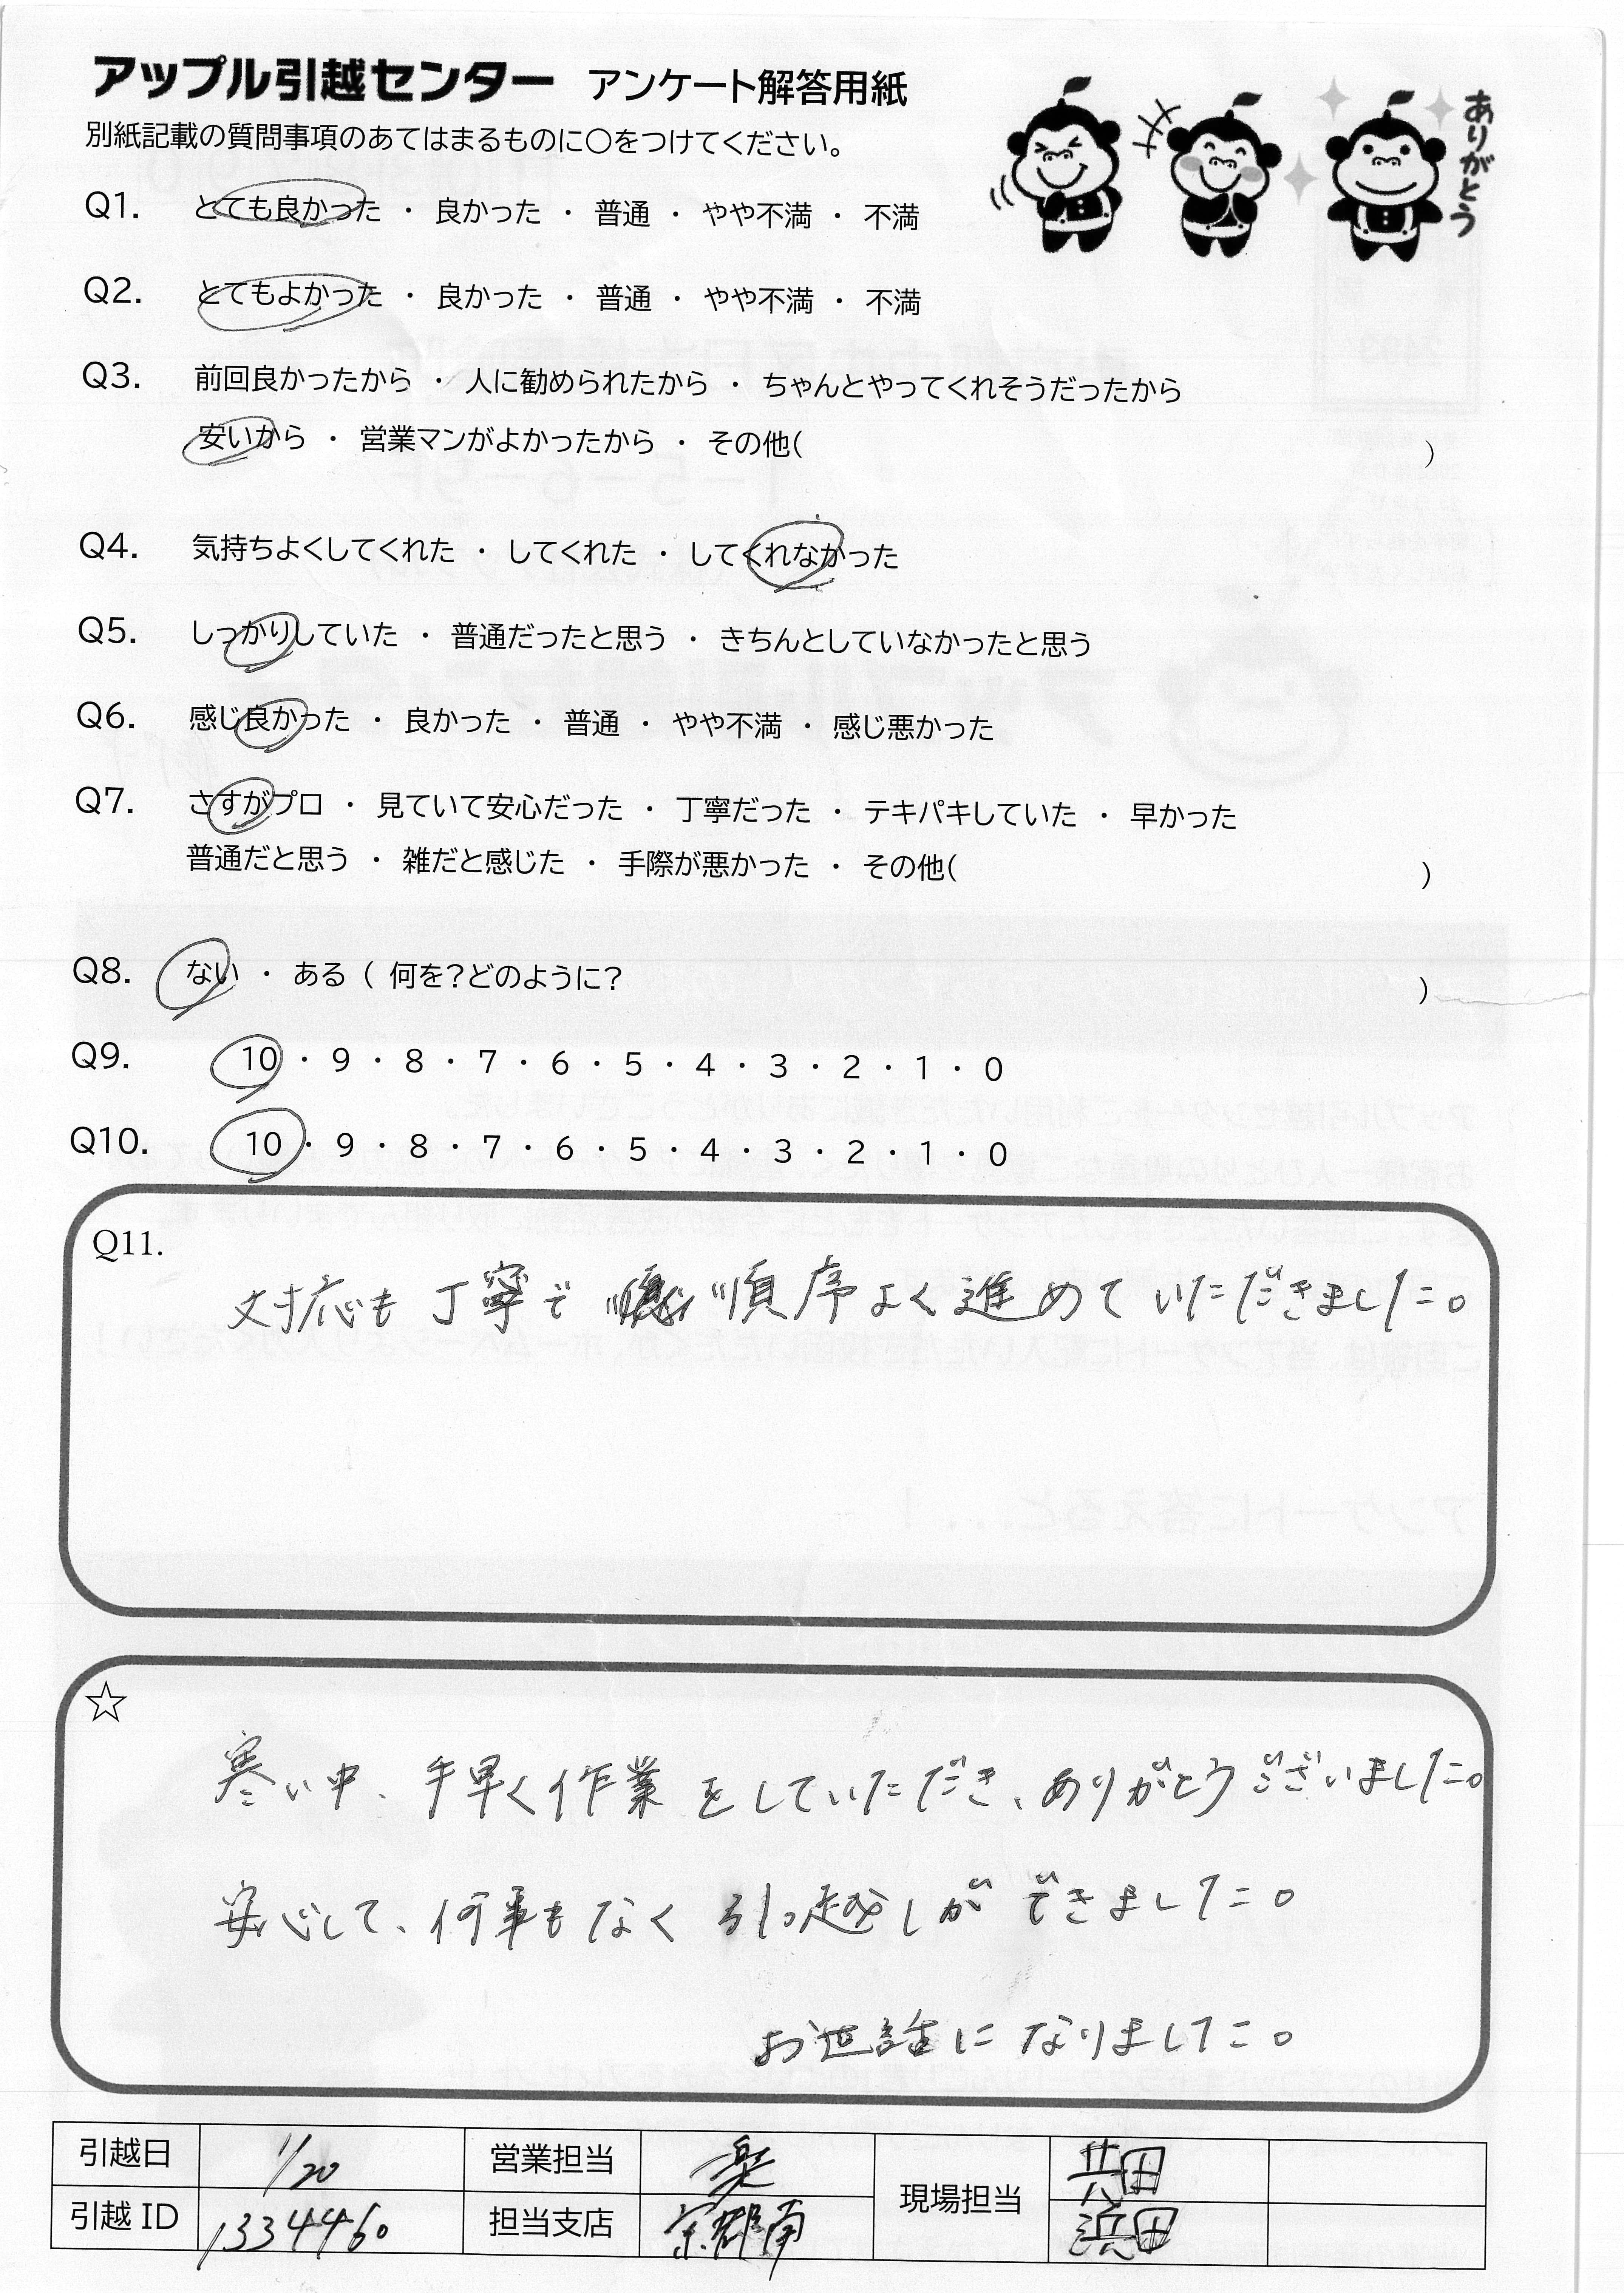 アップル引越センター アンケート解答用紙
ありがとう
別紙記載の質問事項のあてはまるものに○をつけてください。
Q1. とても良かった ・ 良かった ・ 普通 ・ やや不満 ・ 不満
Q2. とてもよかった ・ 良かった ・ 普通 ・ やや不満 ・ 不満
Q3. 前回良かったから ・ 人に勧められたから ・ ちゃんとやってくれそうだったから
安いから ・ 営業マンがよかったから ・ その他( )
Q4. 気持ちよくしてくれた ・ してくれた ・ してくれなかった
Q5. しっかりしていた ・ 普通だったと思う ・ きちんとしていなかったと思う
Q6. 感じ良かった ・ 良かった ・ 普通 ・ やや不満 ・ 感じ悪かった
Q7. さすがプロ ・ 見ていて安心だった ・ 丁寧だった ・ テキパキしていた ・ 早かった
普通だと思う ・ 雑だと感じた ・ 手際が悪かった ・ その他( )
Q8. ない ・ ある ( 何を?どのように? )
Q9. 10 ・ 9 ・ 8 ・ 7 ・ 6 ・ 5 ・ 4 ・ 3 ・ 2 ・ 1 ・ 0
Q10. 10 ・ 9 ・ 8 ・ 7 ・ 6 ・ 5 ・ 4 ・ 3 ・ 2 ・ 1 ・ 0
Q11.
対応も丁寧で 順序よく進めていただきました。
☆
寒い中、手早く作業をしていただき、ありがとうございました。
安心して、何事もなく引っ越しができました。
お世話になりました。
引越日 1/20 営業担当 現場担当
引越 ID 1334460 担当支店 京都南 浜田